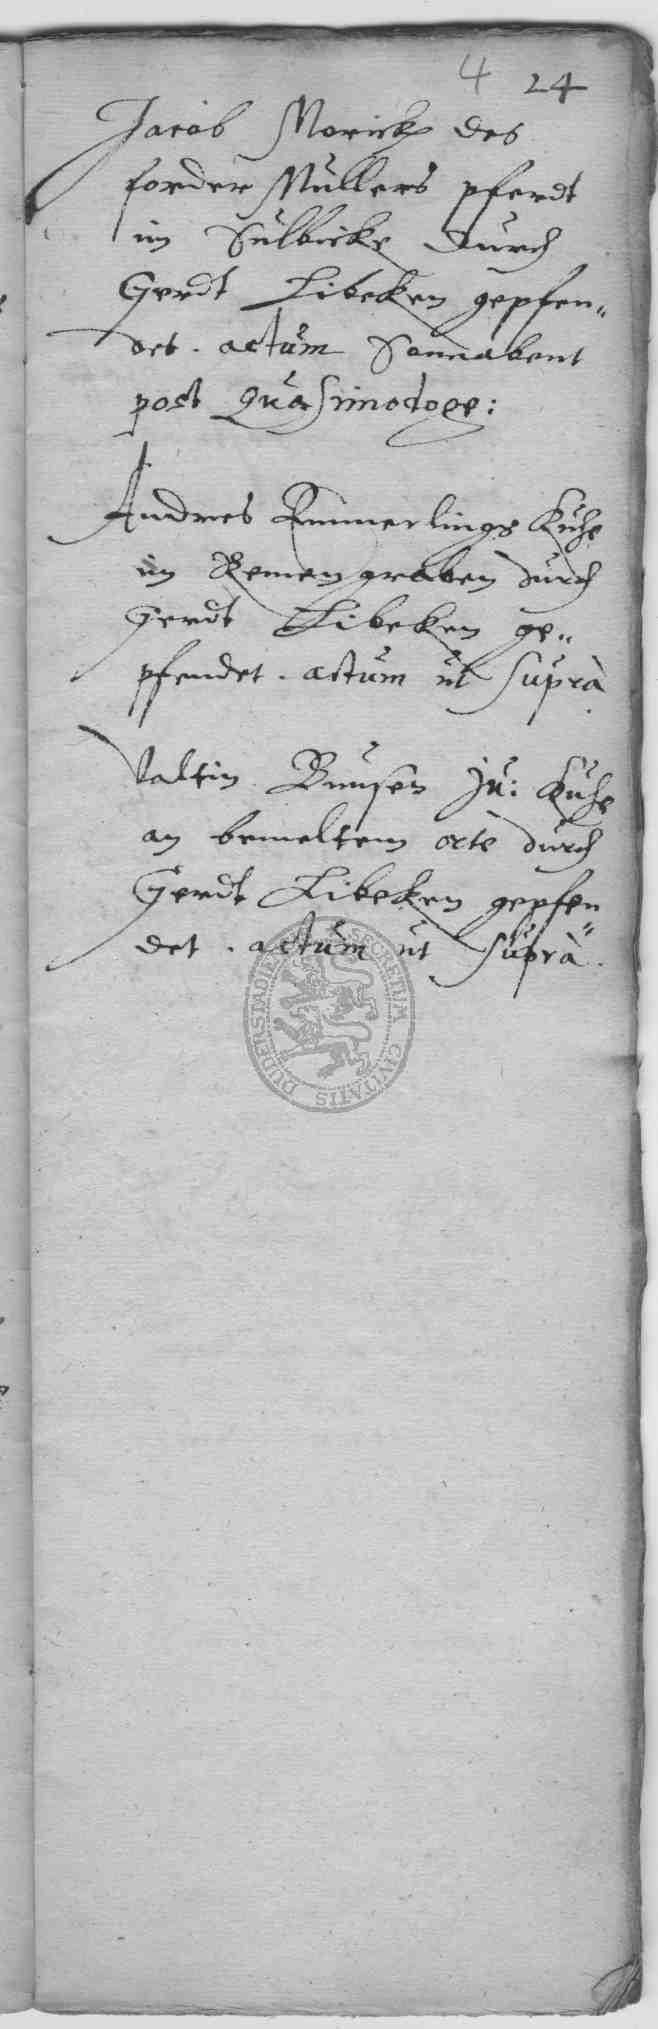 4 24
Jacob Morick des
forder Müllers pferdt
im Sülbicke durch
Gerdt Libeken gepfen„
det. actum Sonnabent
post Quasimodoge:
Andres Emmerlings Kuhe
im Remengraben durch
Gerdt Libeken ge„
pfendet. actum ut supra
Valtin Bunsen ju: Kuhe
an bemeltem orte durch
Gerdt Libeken gepfen„
det. actum ut supra.
SECRETUM CIVITATIS DUDERSTADIE